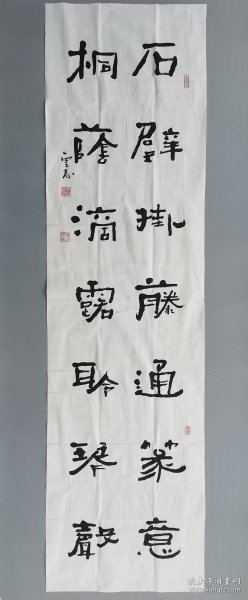 石壁掛藤通篆意
桐蔭滴露聆琴聲
孔夫子旧书网